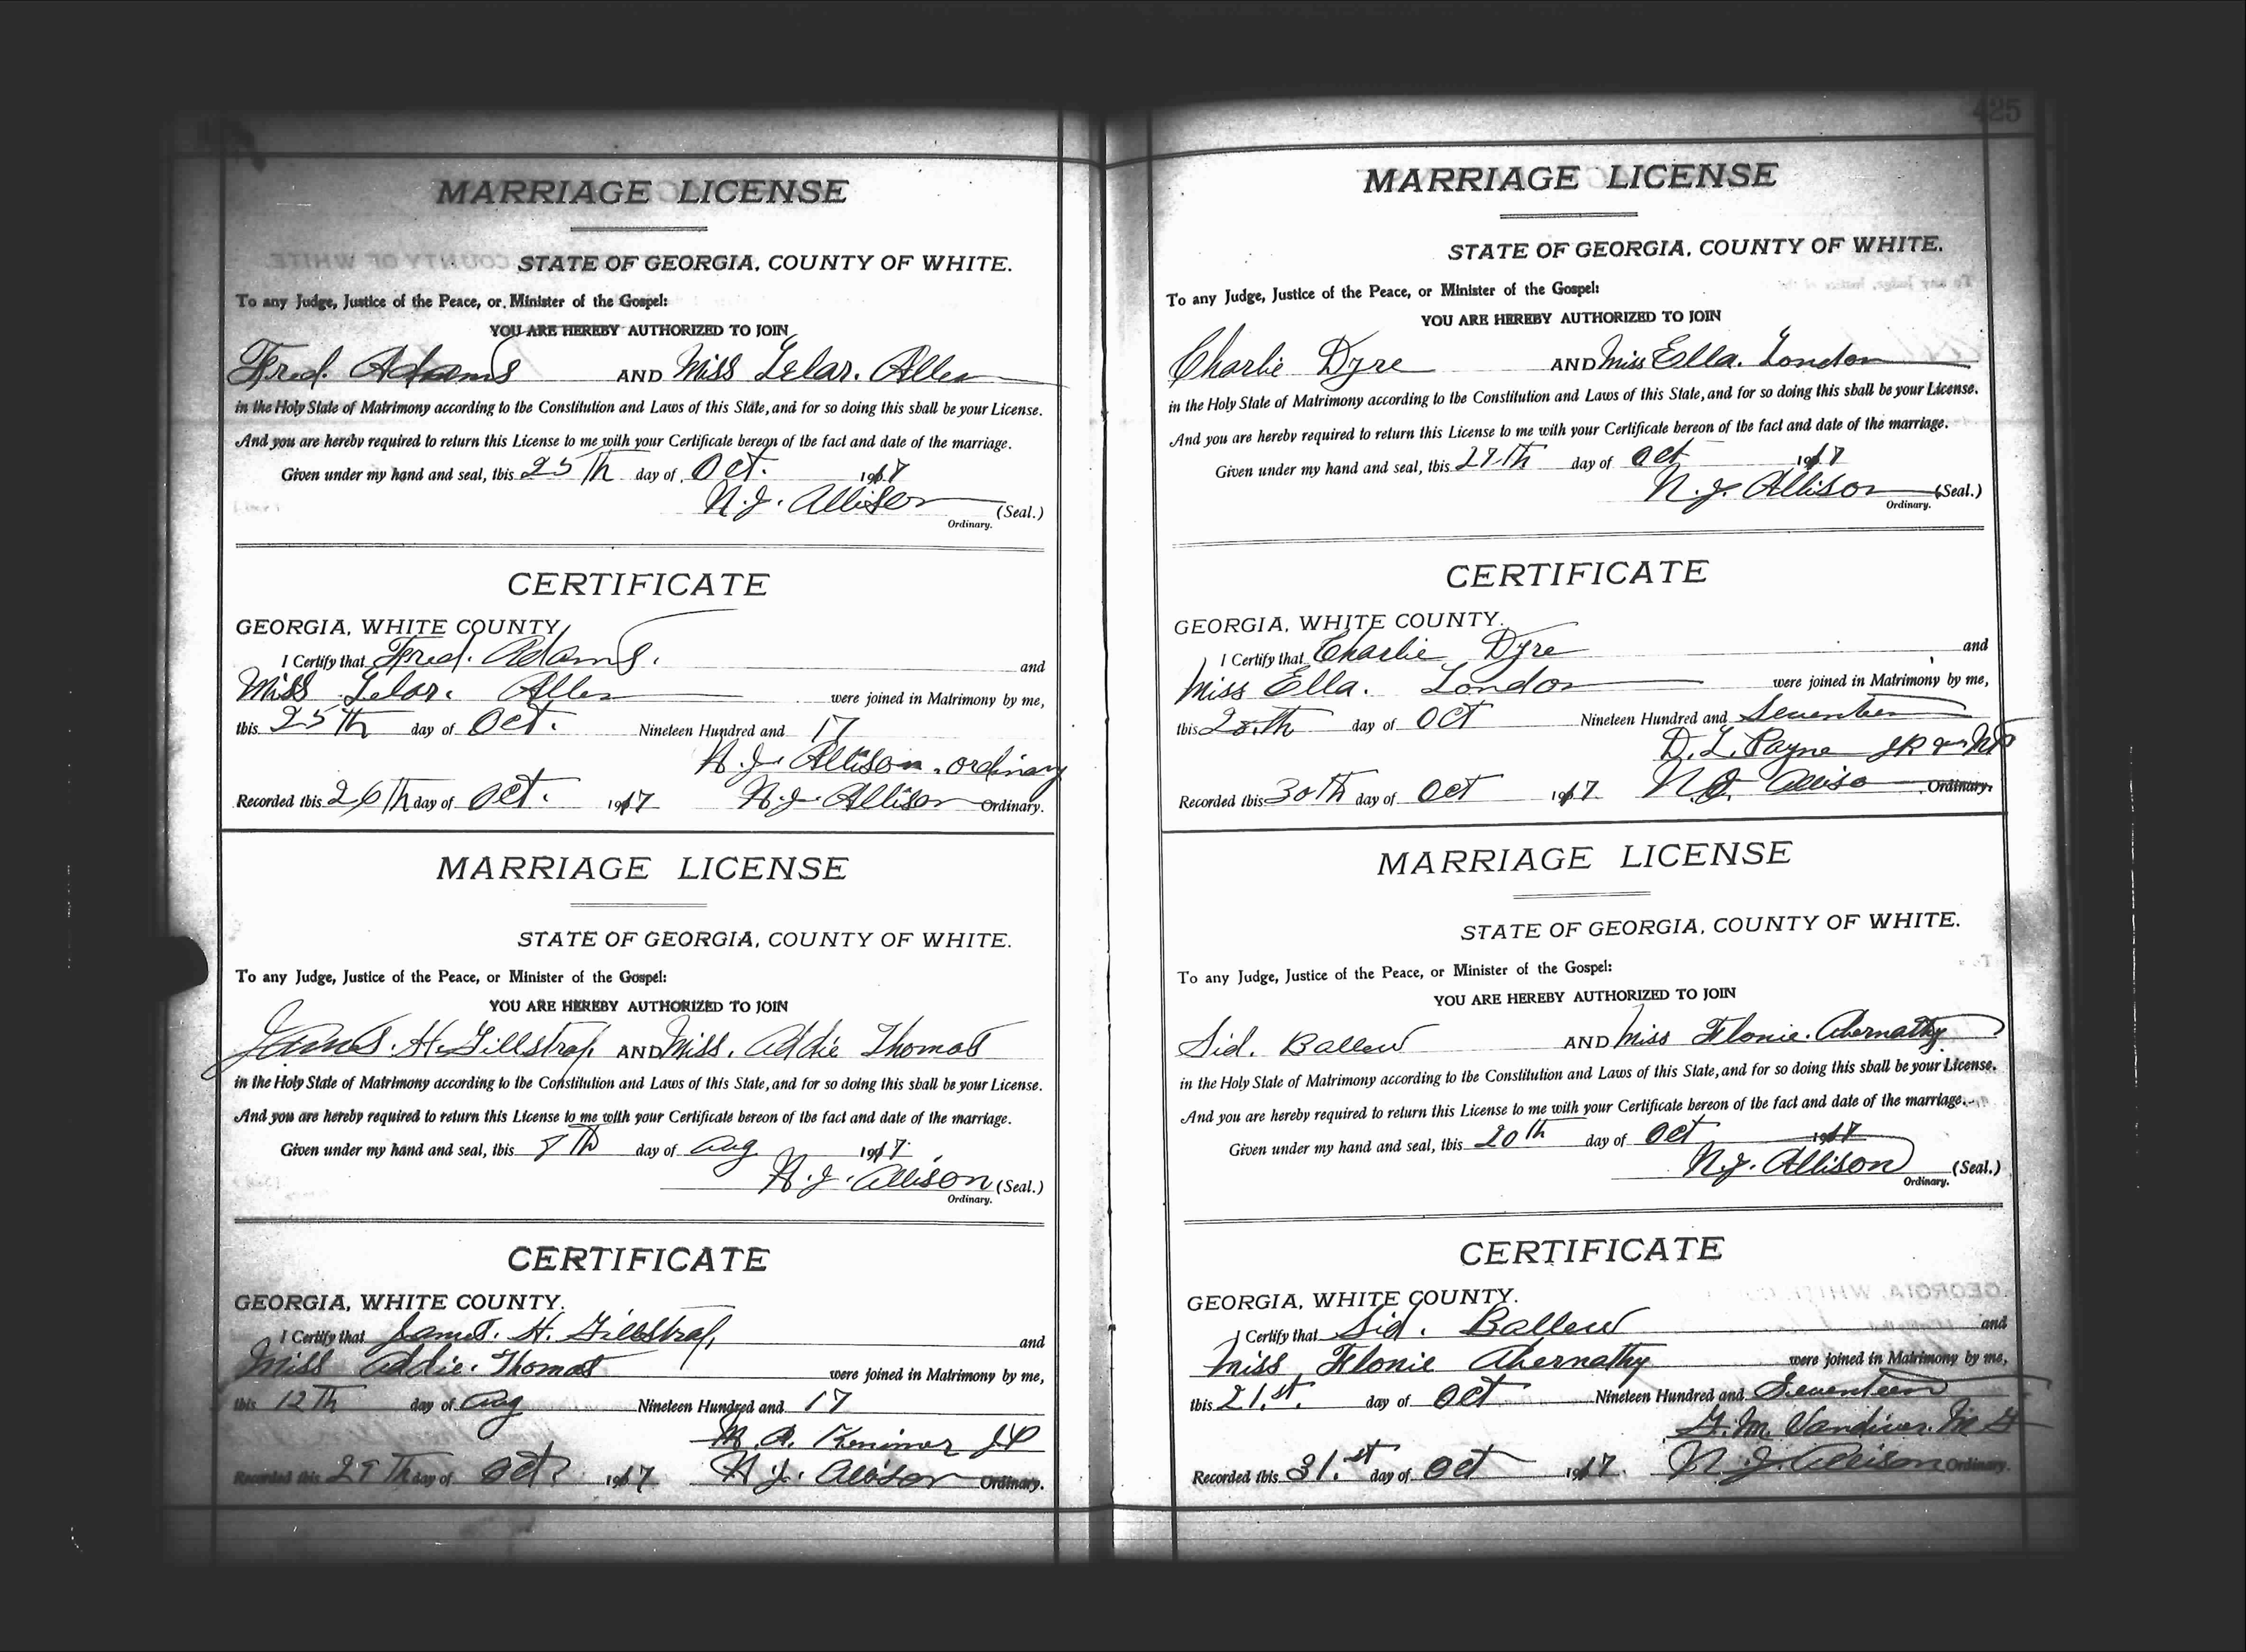 MARRIAGE LICENSE
STATE OF GEORGIA, COUNTY OF WHITE.
To any Judge, Justice of the Peace, or Minister of the Gospel:
YOU ARE HEREBY AUTHORIZED TO JOIN
Fred. Adams AND Miss Lelar. Allen
in the Holy State of Matrimony according to the Constitution and Laws of this State, and for so doing this shall be your License.
And you are hereby required to return this License to me with your Certificate hereon of the fact and date of the marriage.
Given under my hand and seal, this 25th day of Oct. 1917
N. J. Allison (Seal.)
Ordinary.
CERTIFICATE
GEORGIA, WHITE COUNTY.
I Certify that Fred. Adams. and
Miss Lelar. Allen were joined in Matrimony by me,
this 25th day of Oct. Nineteen Hundred and 17
N. J. Allison. ordinary
Recorded this 26th day of Oct. 1917 N. J. Allison Ordinary.
MARRIAGE LICENSE
STATE OF GEORGIA, COUNTY OF WHITE.
To any Judge, Justice of the Peace, or Minister of the Gospel:
YOU ARE HEREBY AUTHORIZED TO JOIN
James. H. Gillstrap. AND Miss. Addie Thomas
in the Holy State of Matrimony according to the Constitution and Laws of this State, and for so doing this shall be your License.
And you are hereby required to return this License to me with your Certificate hereon of the fact and date of the marriage.
Given under my hand and seal, this 8th day of Aug 1917.
N. J. Allison (Seal.)
Ordinary.
CERTIFICATE
GEORGIA, WHITE COUNTY.
I Certify that James. H. Gillstrap, and
Miss Addie. Thomas were joined in Matrimony by me,
this 12th day of Aug Nineteen Hundred and 17
M. A. Kenimer JP
Recorded this 29th day of Oct. 1917 N. J. Allison Ordinary.
425
MARRIAGE LICENSE
STATE OF GEORGIA, COUNTY OF WHITE.
To any Judge, Justice of the Peace, or Minister of the Gospel:
YOU ARE HEREBY AUTHORIZED TO JOIN
Charlie Dyre AND Miss Ella. London
in the Holy State of Matrimony according to the Constitution and Laws of this State, and for so doing this shall be your License.
And you are hereby required to return this License to me with your Certificate hereon of the fact and date of the marriage.
Given under my hand and seal, this 27th day of Oct 1917
N. J. Allison (Seal.)
Ordinary.
CERTIFICATE
GEORGIA, WHITE COUNTY.
I Certify that Charlie Dyre and
Miss Ella. London were joined in Matrimony by me,
this 28.th day of Oct Nineteen Hundred and Seventeen
D. L. Payne
Recorded this 30th day of Oct 1917. N. J. Alliso Ordinary.
MARRIAGE LICENSE
STATE OF GEORGIA, COUNTY OF WHITE.
To any Judge, Justice of the Peace, or Minister of the Gospel:
YOU ARE HEREBY AUTHORIZED TO JOIN
Sid. Ballew AND Miss Flonie. Abernathy
in the Holy State of Matrimony according to the Constitution and Laws of this State, and for so doing this shall be your License.
And you are hereby required to return this License to me with your Certificate hereon of the fact and date of the marriage.
Given under my hand and seal, this 20th day of Oct 1917
N. J. Allison (Seal.)
Ordinary.
CERTIFICATE
GEORGIA, WHITE COUNTY.
I Certify that Sid. Ballew and
Miss Flonie Abernathy were joined in Matrimony by me,
this 21.st. day of Oct Nineteen Hundred and Seventeen
G. M. Vandiver. M G
Recorded this 31.st day of Oct 1917. N. J. Allison Ordinary.